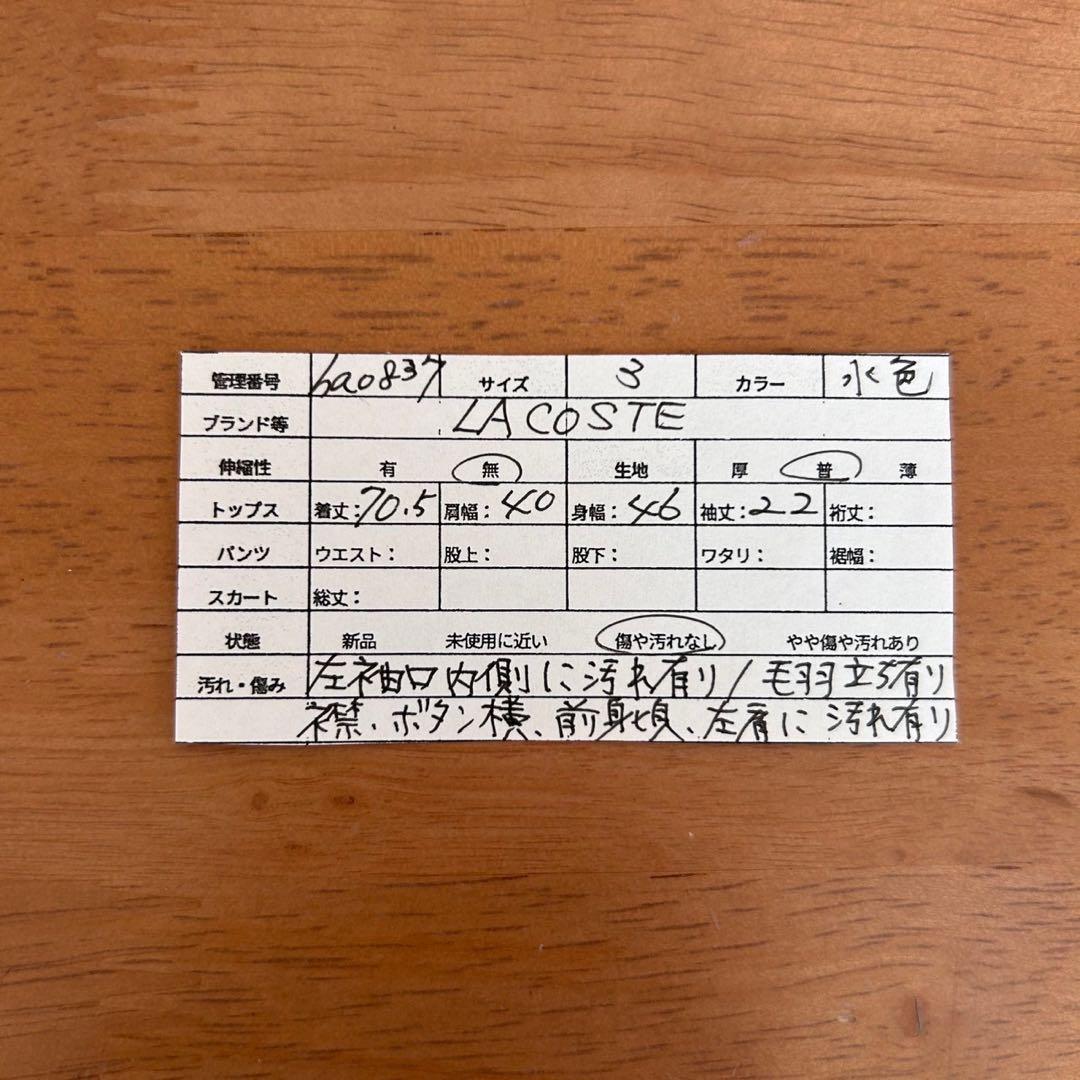 管理番号 ha0837 サイズ 3 カラー 水色
ブランド等 LACOSTE
伸縮性 有 無 生地 厚 普 薄
トップス 着丈:70.5 肩幅:40 身幅:46 袖丈:22 裄丈:
パンツ ウエスト: 股上: 股下: ワタリ: 裾幅:
スカート 総丈:
状態 新品 未使用に近い 傷や汚れなし やや傷や汚れあり
汚れ・傷み 左袖口内側に汚れ有り/毛羽立ち有り
襟、ボタン横、前身頃、左肩に汚れ有り